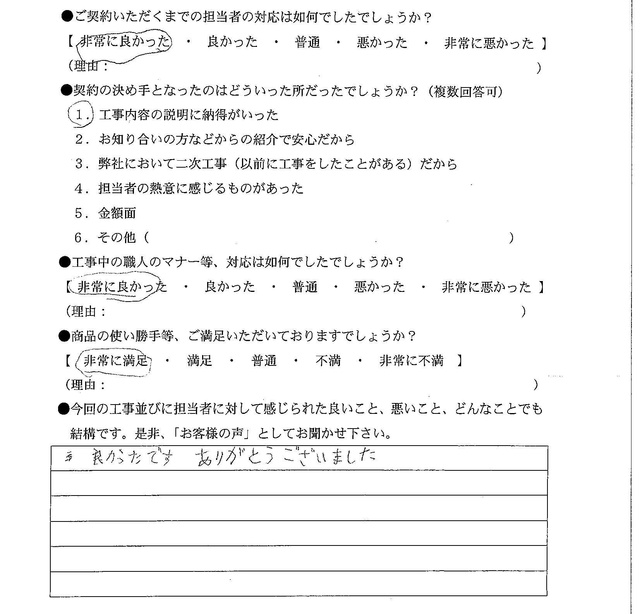 ●ご契約いただくまでの担当者の対応は如何でしたでしょうか？
【 非常に良かった ・ 良かった ・ 普通 ・ 悪かった ・ 非常に悪かった 】
（理由： ）
●契約の決め手となったのはどういった所だったでしょうか？（複数回答可）
１．工事内容の説明に納得がいった
２．お知り合いの方などからの紹介で安心だから
３．弊社において二次工事（以前に工事をしたことがある）だから
４．担当者の熱意に感じるものがあった
５．金額面
６．その他（ ）
●工事中の職人のマナー等、対応は如何でしたでしょうか？
【 非常に良かった ・ 良かった ・ 普通 ・ 悪かった ・ 非常に悪かった 】
（理由： ）
●商品の使い勝手等、ご満足いただいておりますでしょうか？
【 非常に満足 ・ 満足 ・ 普通 ・ 不満 ・ 非常に不満 】
（理由： ）
●今回の工事並びに担当者に対して感じられた良いこと、悪いこと、どんなことでも
結構です。是非、「お客様の声」としてお聞かせ下さい。
良かったです ありがとうございました